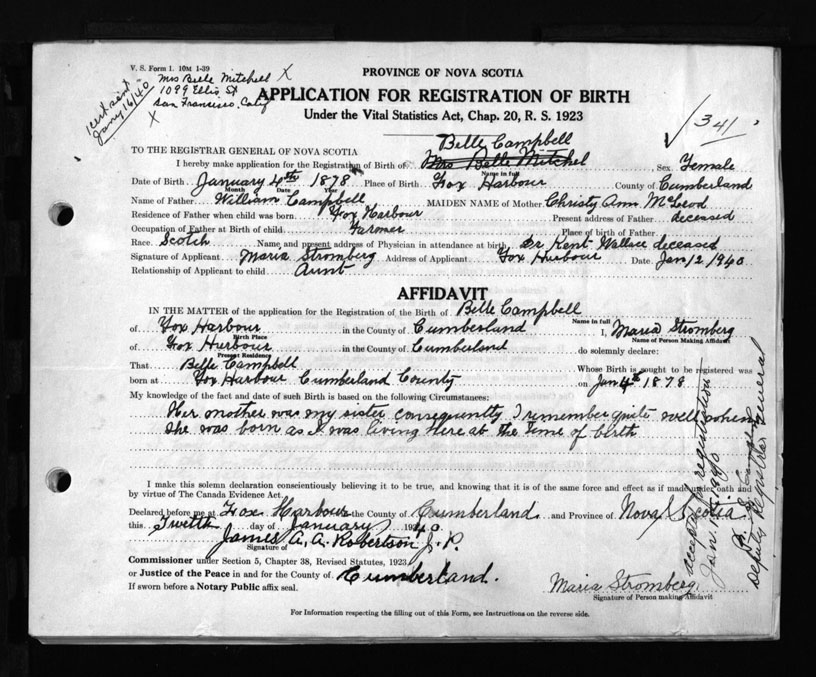 V. S. Form 1. 10M 1-39
Mrs Belle Mitchell X
1099 Ellis St
San Francisco. Calif
X
1 cert sent
Jany 16/40
PROVINCE OF NOVA SCOTIA
APPLICATION FOR REGISTRATION OF BIRTH
Under the Vital Statistics Act, Chap. 20, R. S. 1923
341
TO THE REGISTRAR GENERAL OF NOVA SCOTIA
Belle Campbell
I hereby make application for the Registration of Birth of Mrs Belle Mitchel Sex Female
Name in full
Date of Birth January 4th 1878 Place of Birth Fox Harbour County of Cumberland
Month Date Year
Name of Father William Campbell MAIDEN NAME of Mother Christy Ann McLeod
Residence of Father when child was born Fox Harbour Present address of Father deceased
Occupation of Father at Birth of child Farmer Place of birth of Father
Race. Scotch Name and present address of Physician in attendance at birth Dr Kent Wallace deceased
Signature of Applicant Maria Stromberg Address of Applicant Fox Hurbour Date Jan 12 1940
Relationship of Applicant to child Aunt
AFFIDAVIT
IN THE MATTER of the application for the Registration of the Birth of Belle Campbell
Name in full
of Fox Harbour in the County of Cumberland I, Maria Stromberg
Birth Place Name of Person Making Affidavit
of Fox Hurbour in the County of Cumberland do solemnly declare:
Present Residence
That Belle Campbell Whose Birth is sought to be registered was
born at Fox Harbour Cumberland County on Jan 4th 1878
My knowledge of the fact and date of such Birth is based on the following Circumstances:
Her mother was my sister consequently I remember quite well when
she was born as I was living there at the time of birth
I make this solemn declaration conscientiously believing it to be true, and knowing that it is of the same force and effect as if made under oath and
by virtue of The Canada Evidence Act.
Declared before me at Fox Harbour the County of Cumberland and Province of Nova Scotia
this Twelth day of January 1940.
James A. A. Robertson J. P.
Signature of
Commissioner under Section 5, Chapter 38, Revised Statutes, 1923
or Justice of the Peace in and for the County of Cumberland.
If sworn before a Notary Public affix seal.
Maria Stromberg
Signature of Person making Affidavit
For Information respecting the filling out of this Form, see Instructions on the reverse side.
accepted for registration
Jan. 1940
Deputy Registrar General